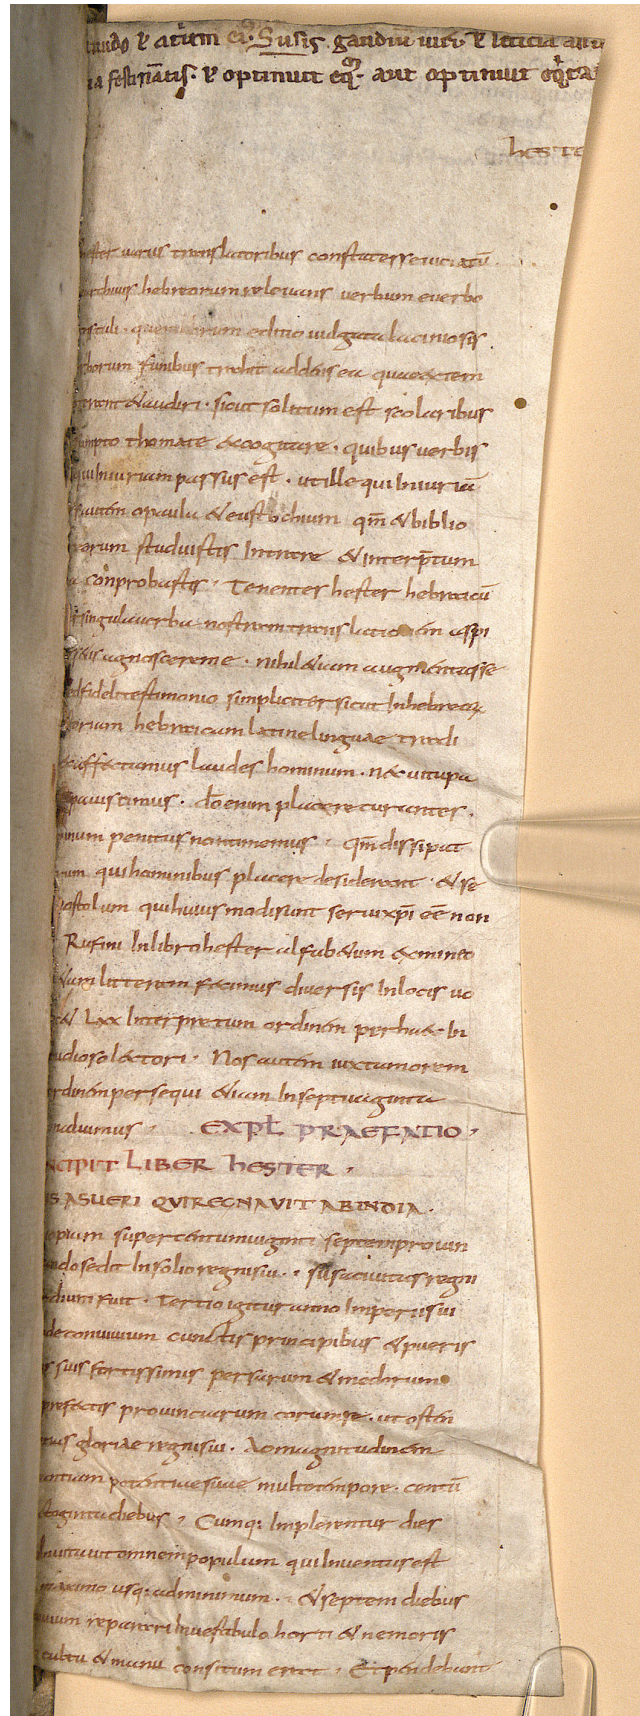 tando & atrem ei. Susis gaudiu mei. & leticia
ia festinatis. & optinuit eqq. aut optinuit
heste
hester uariis translatoribus constat esse uiciatu.
archiuis hebreorum releuans uerbum e uerbo
nstuli. quem librum editio uulgata laciniosis
rborum funibus trahit addens ea quae ex tem
terant & audiri. sicut solitum est scolaribus
umpto themate excogitare. quibus uerbis
qui iniuriam passus est. ut ille qui iniuria
s autem o paula & eustochium qm & biblio
rorum studuistis intrare & interptum
a conprobastis. Tenentes hester hebraicu
singula uerba nostram translationem aspi
agnoscere me. nihil etiam augmentasse
ed fideli testimonio simpliciter sicut in hebreo
toriam hebraicam latine linguae tradi
c affectamus laudes hominum. nec uitupe
pauescimus. do enim placere curantes.
minum penitus non timemus. qm dissipat
rum qui hominibus placere desiderant. & se
postolum qui huius modi sunt serui xpi ee non
Rufini In libro hester alfabetum ex minio
etam litteram fecimus diuersis In locis uo
et LXX Interpretum ordinem per haec In
udioso lectori. Nos autem iuxta morem
rdinem persequi etiam In septuaginta
maluimus. EXPL PRAEFATIO.
NCIPIT LIBER HESTER.
IS ASUERI QUI REGNAVIT AB INDIA.
iopiam super centum uiginti septem prouin
ando sedit In solio regni sui. susa ciuitas regni
rdium fuit. Tertio igitur anno Imperii sui
de conuiuium cunctis principibus & pueris
s suis fortissimis persarum & medorum
prefectis prouinciarum coram se. ut osten
itias gloriae regni sui. Ac magnitudinem
antiam potentiae suae multo tempore. centu
toginta diebus. Cumq; Implerentur dies
Inuitauit omnem populum qui Inuentus est
maximo usq; ad minimum. & septem diebus
uium reparari In uestibulo horti & nemoris
cultu & manu consitum erat. Et pendebant